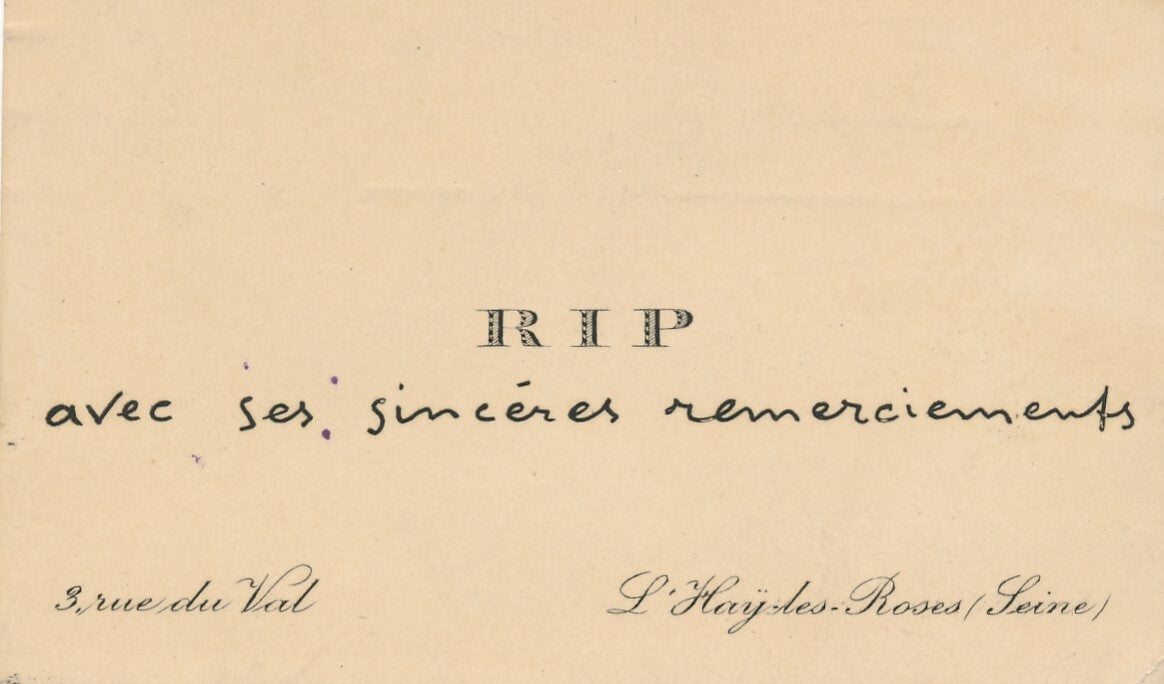 RIP
avec ses sincéres remerciements
3, rue du Val
L'Haÿ-les-Roses (Seine)